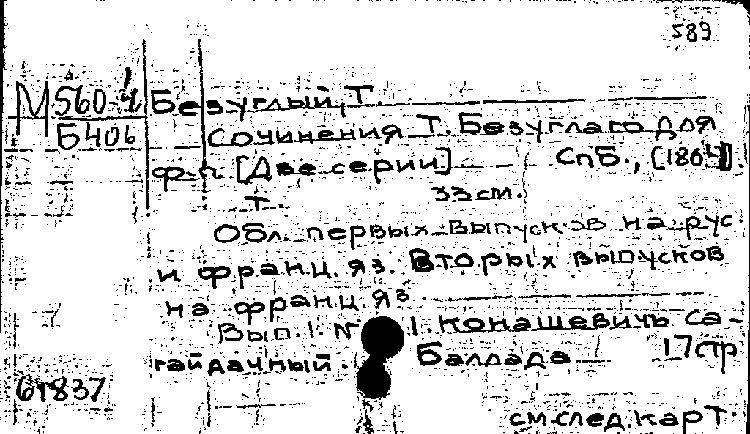 589
М 560-4 Безуглый, Т.
Б 406 Сочинения Т. Безуглаго для
ф.п. [Две серии] СПб., [1864].
т. 33 см.
Обл. первых выпусков на рус.
и франц. яз. Вторых выпусков
на франц. яз.
Вып. 1. № 1. Конашевичъ Са-
гайдачный. Баллада 17 стр
61837
см. след. карт.